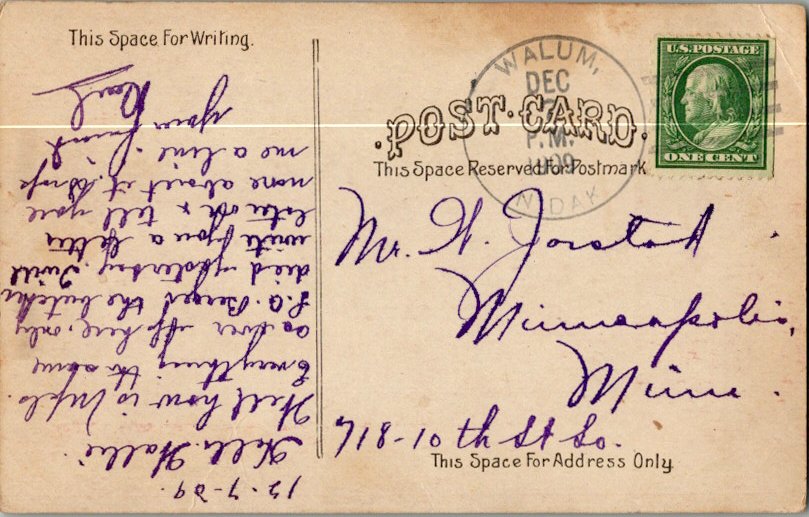 This Space For Writing.
12-7-09.
Hello Halli.
Well how is Mpls.
Everything the same
as ever upp here, only
L.A. Berges the butcher
died yesterday. I will
write you a letter
later on & tell you
more about it. Drop
me a line. 
Your friend
WALUM,
DEC
P.M.
1909
N. DAK
U.S. POSTAGE
ONE CENT
POST CARD.
This Space Reserved For Postmark
Mr. H. Jorstad
Minneapolis,
Minn.
718-10th St So.
This Space For Address Only.